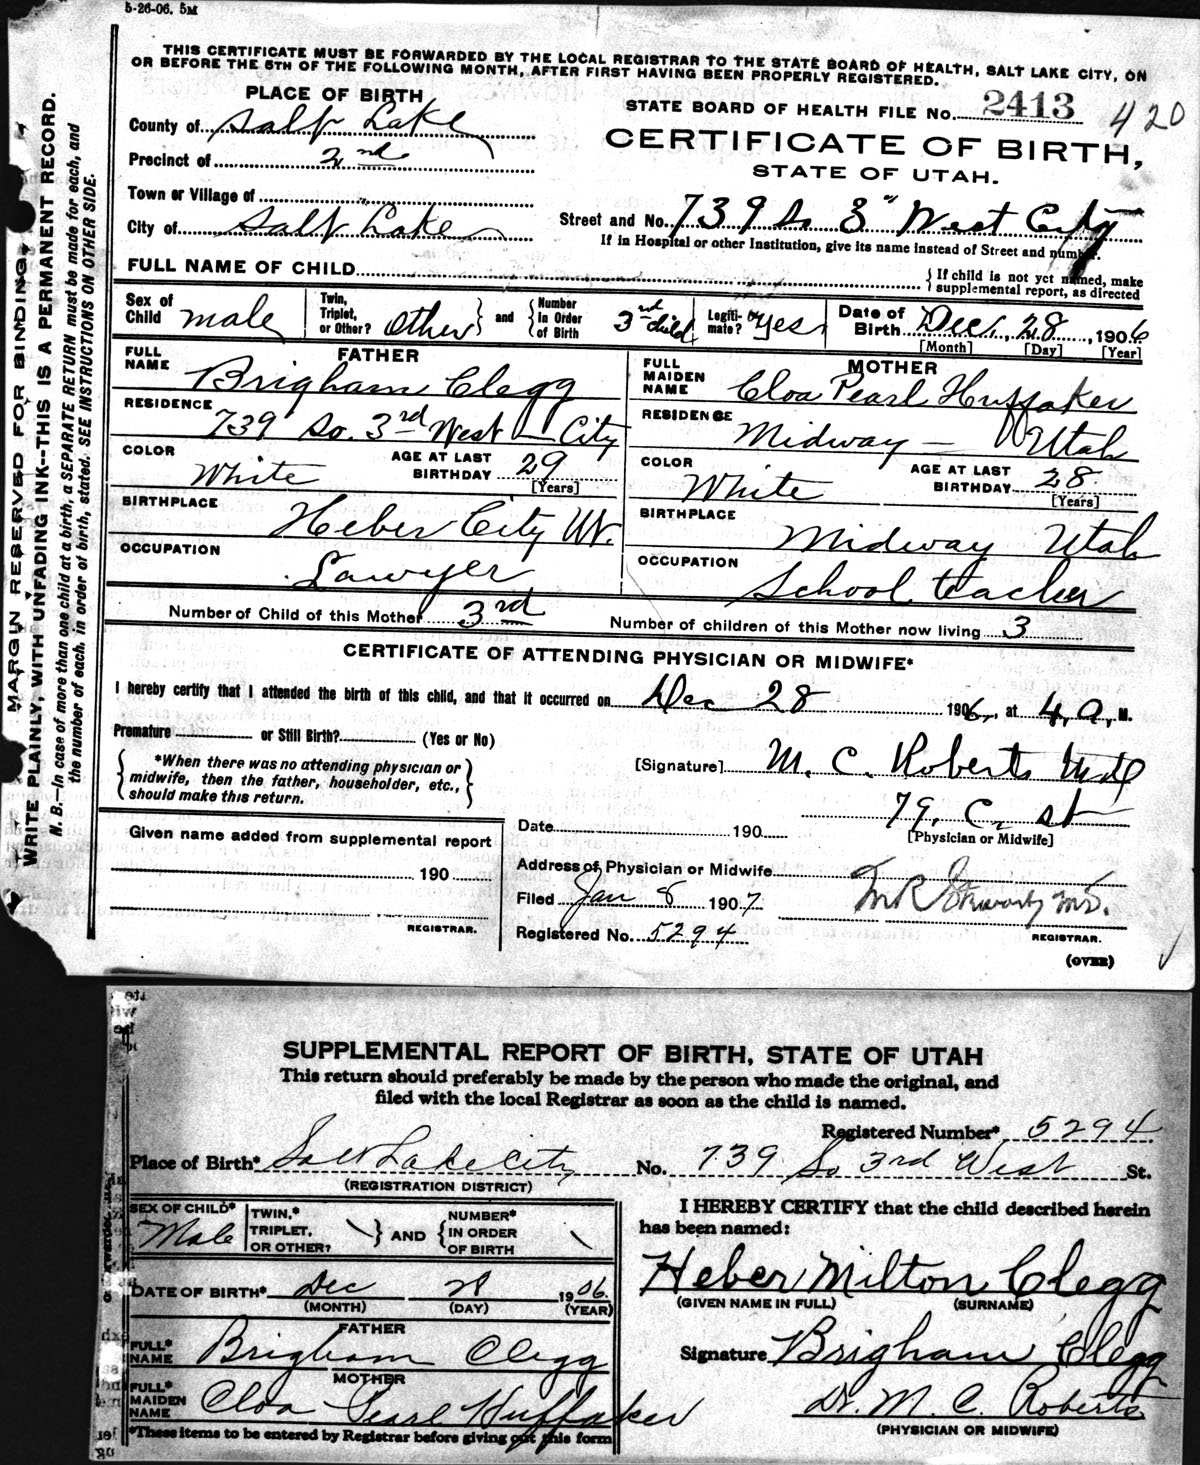 5-26-06. 5M
THIS CERTIFICATE MUST BE FORWARDED BY THE LOCAL REGISTRAR TO THE STATE BOARD OF HEALTH, SALT LAKE CITY, ON
OR BEFORE THE 5TH OF THE FOLLOWING MONTH, AFTER FIRST HAVING BEEN PROPERLY REGISTERED.
MARGIN RESERVED FOR BINDING.
WRITE PLAINLY, WITH UNFADING INK--THIS IS A PERMANENT RECORD.
N. B.—In case of more than one child at a birth, a SEPARATE RETURN must be made for each, and
the number of each, in order of birth, stated. SEE INSTRUCTIONS ON OTHER SIDE.
PLACE OF BIRTH
County of Salt Lake
Precinct of 2nd
Town or Village of "
City of Salt Lake
STATE BOARD OF HEALTH FILE No. 2413 420
CERTIFICATE OF BIRTH,
STATE OF UTAH.
Street and No. 739 So 3" West City
If in Hospital or other Institution, give its name instead of Street and number.
FULL NAME OF CHILD
If child is not yet named, make
supplemental report, as directed
Sex of Child male Twin, Triplet, or Other? Other and Number in Order of Birth 3rd child Legiti-mate? Yes Date of Birth Dec, 28, 1906
[Month] [Day] [Year]
FATHER
FULL NAME Brigham Clegg
RESIDENCE 739 So. 3rd West - City
COLOR White AGE AT LAST BIRTHDAY 29
[Years]
BIRTHPLACE Heber City Ut.
OCCUPATION Lawyer
MOTHER
FULL MAIDEN NAME Cloa Pearl Huffaker
RESIDENCE Midway - Utah
COLOR White AGE AT LAST BIRTHDAY 28
[Years]
BIRTHPLACE Midway Utah
OCCUPATION School teacher
Number of Child of this Mother 3rd Number of children of this Mother now living 3
CERTIFICATE OF ATTENDING PHYSICIAN OR MIDWIFE*
I hereby certify that I attended the birth of this child, and that it occurred on Dec 28 1906, at 4, a, M.
Premature or Still Birth? (Yes or No)
*When there was no attending physician or
midwife, then the father, householder, etc.,
should make this return.
[Signature] M. C. Roberts MD
79, C, st
[Physician or Midwife]
Date 190
Given name added from supplemental report
190
REGISTRAR.
Address of Physician or Midwife
Filed Jan 8 1907
Registered No. 5294
M.D.
REGISTRAR.
(OVER)
SUPPLEMENTAL REPORT OF BIRTH, STATE OF UTAH
This return should preferably be made by the person who made the original, and
filed with the local Registrar as soon as the child is named.
Registered Number* 5294
Place of Birth* Salt Lake City No. 739 So 3rd West St.
(REGISTRATION DISTRICT)
SEX OF CHILD* Male TWIN,* TRIPLET, OR OTHER? \ AND NUMBER* IN ORDER OF BIRTH \
DATE OF BIRTH* Dec 28 1906.
(MONTH) (DAY) (YEAR)
FATHER
FULL* NAME Brigham Clegg
MOTHER
FULL* MAIDEN NAME Cloa Pearl Huffaker
*These items to be entered by Registrar before giving out this form
I HEREBY CERTIFY that the child described herein
has been named:
Heber Milton Clegg
(GIVEN NAME IN FULL) (SURNAME)
Signature Brigham Clegg
Dr. M. C. Roberts
(PHYSICIAN OR MIDWIFE)